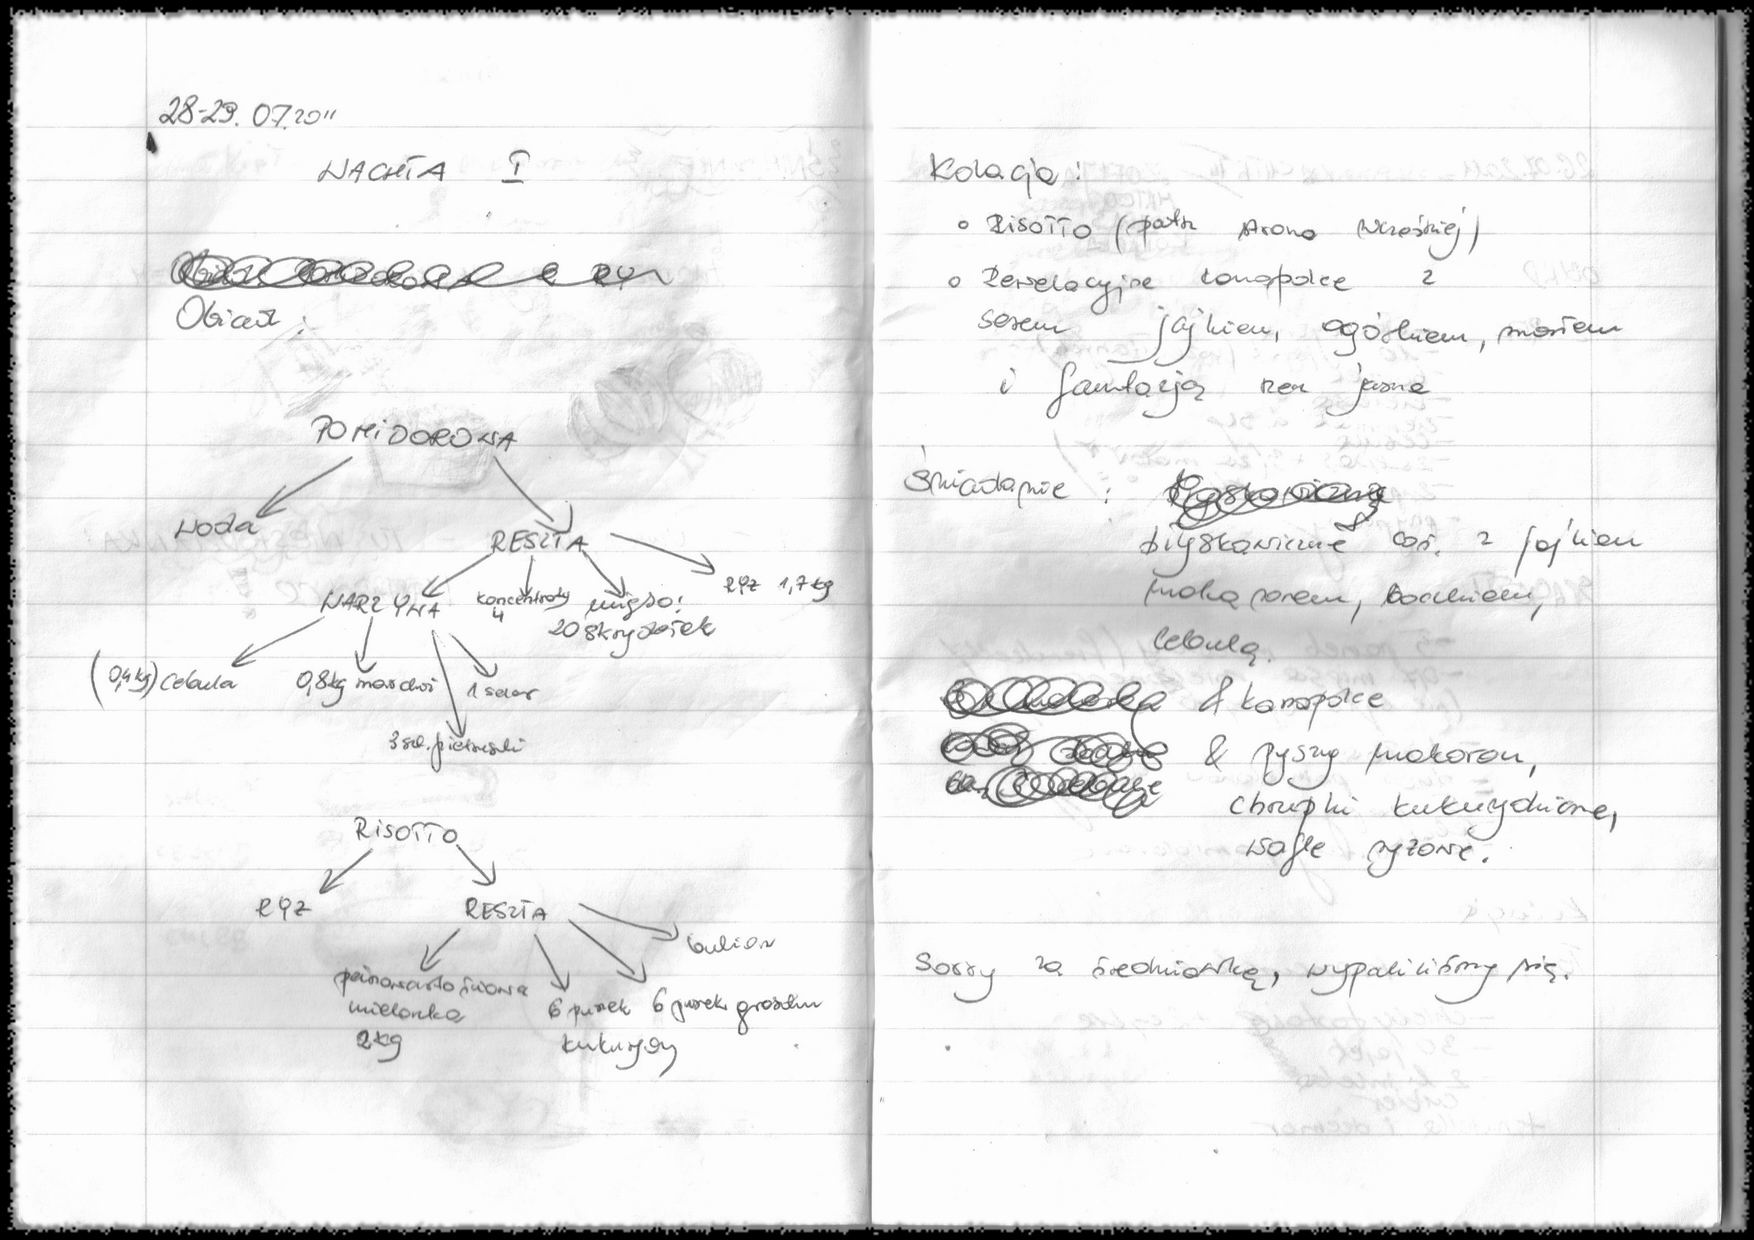 28-29. 07.2011
WACHTA I
Obiad :
POMIDOROWA
woda
RESZTA
WARZYWA
koncentraty
4
mięso:
20 skrzydełek
RYŻ 1,7 kg
(0,4 kg) cebula
0,8kg marchwi
1 seler
3 szt. pietruszki
RISOTTO
RYŻ
RESZTA
pełnowartościowa
mielonka
2kg
6 puszek
kukurydzy
6 puszek groszku
bulion
Kolacja :
• RISOTTO (patrz strona wcześniej)
• Rewelacyjne kanapki z
serem jajkiem, ogórkiem, masłem
i fantazją rzecz jasna
Śniadanie :
błyskawiczne coś. z jajkiem
mąką serem, boczkiem,
cebulą.
& kanapki
& pyszny makaron,
chrupki kukurydziane,
wafle ryżowe.
Sorry za średniówkę, wypaliliśmy się.